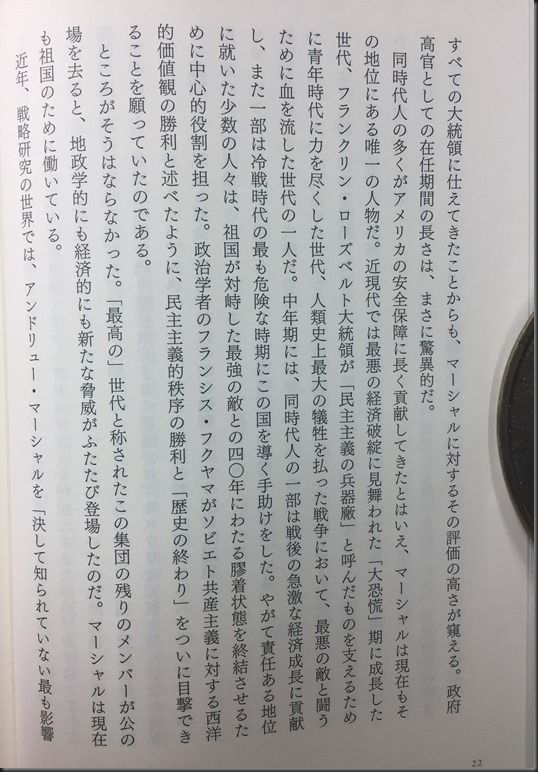 すべての大統領に仕えてきたことからも、マーシャルに対するその評価の高さが窺える。政府
高官としての在任期間の長さは、まさに驚異的だ。
同時代人の多くがアメリカの安全保障に長く貢献してきたとはいえ、マーシャルは現在もそ
の地位にある唯一の人物だ。近現代では最悪の経済破綻に見舞われた「大恐慌」期に成長した
世代、フランクリン・ローズベルト大統領が「民主主義の兵器廠」と呼んだものを支えるため
に青年時代に力を尽くした世代、人類史上最大の犠牲を払った戦争において、最悪の敵と闘う
ために血を流した世代の一人だ。中年期には、同時代人の一部は戦後の急激な経済成長に貢献
し、また一部は冷戦時代の最も危険な時期にこの国を導く手助けをした。やがて責任ある地位
に就いた少数の人々は、祖国が対峙した最強の敵との四〇年にわたる膠着状態を終結させるた
めに中心的役割を担った。政治学者のフランシス・フクヤマがソビエト共産主義に対する西洋
的価値観の勝利と述べたように、民主主義的秩序の勝利と「歴史の終わり」をついに目撃でき
ることを願っていたのである。
ところがそうはならなかった。「最高の」世代と称されたこの集団の残りのメンバーが公の
場を去ると、地政学的にも経済的にも新たな脅威がふたたび登場したのだ。マーシャルは現在
も祖国のために働いている。
近年、戦略研究の世界では、アンドリュー・マーシャルを「決して知られていない最も影響
22